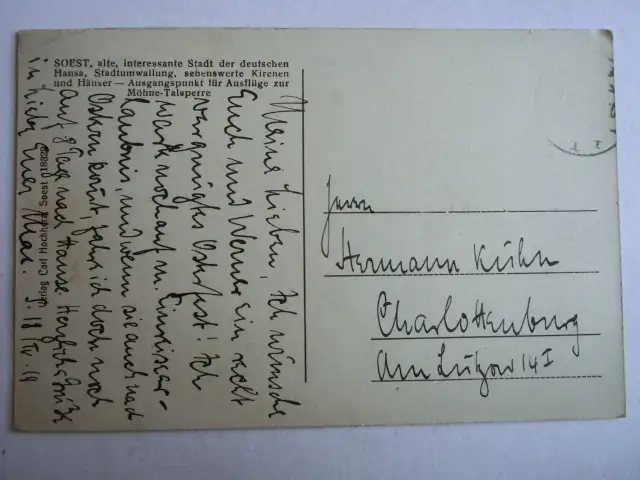 SOEST, alte, interessante Stadt der deutschen
Hansa, Stadtumwallung, sehenswerte Kirchen
und Häuser — Ausgangspunkt für Ausflüge zur
Möhne-Talsperre
Meine Lieben, Ich wünsche
Euch und Werner ein recht
vergnügtes Osterfest! Ich
warte noch auf m. Einreiseer-
laubnis, und wenn sie auch nach
Ostern kommt, fahre ich doch noch
auf 8 Tage nach Hause. Herzliche Grüße
in Liebe Euer
Verlag Carl Hochhut, Soest
Herrn
Hermann Kühn
Charlottenburg
Am Lützow 14 I